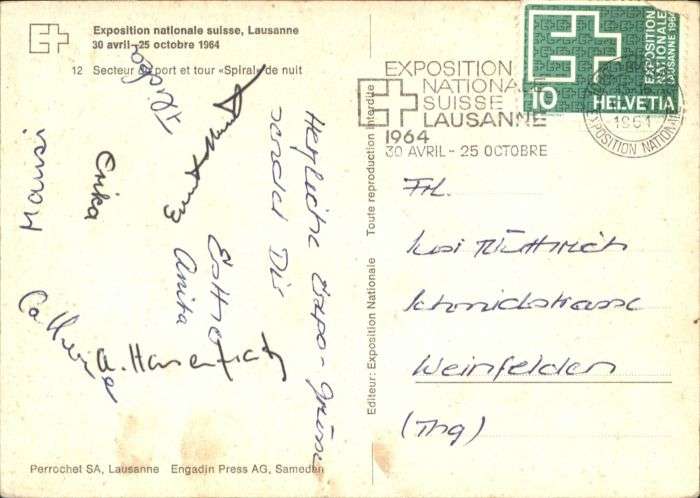 Exposition nationale suisse, Lausanne
30 avril–25 octobre 1964
12 Secteur du port et tour «Spirale» de nuit
Herzliche Expo-Grüsse
sendet Dir
Esther
Anita
Erika
Catherine
A. Hasenfratz
Perrochet SA, Lausanne Engadin Press AG, Samedan
Editeur: Exposition Nationale Toute reproduction interdite
EXPOSITION
NATIONALE
SUISSE
LAUSANNE
1964
30 AVRIL - 25 OCTOBRE
EXPOSITION
NATIONALE
LAUSANNE 1964
10 HELVETIA
EXPOSITION NATION
Frl.
Schmidstrasse
Weinfelden
(Thg)